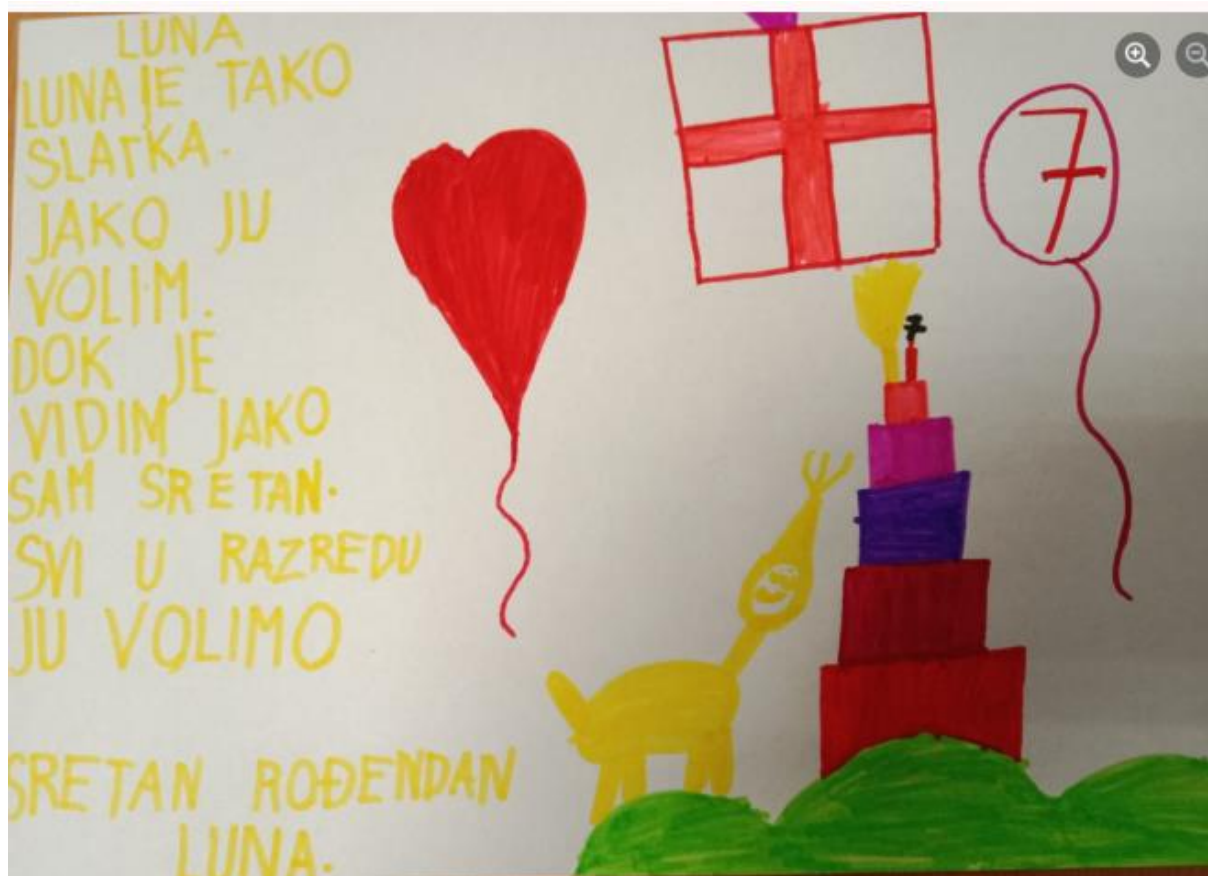 LUNA
LUNA JE TAKO
SLATKA.
JAKO JU
VOLIM.
DOK JE
VIDIM JAKO
SAM SRETAN.
SVI U RAZREDU
JU VOLIMO
SRETAN ROĐENDAN
LUNA.
7
7